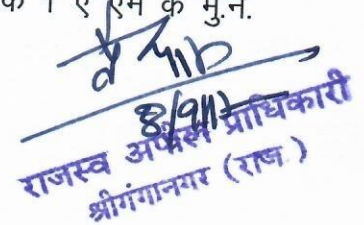 क 1 ए एम के मु.न.
8/9/17
राजस्व अपील प्राधिकारी
श्रीगंगानगर (राज.)